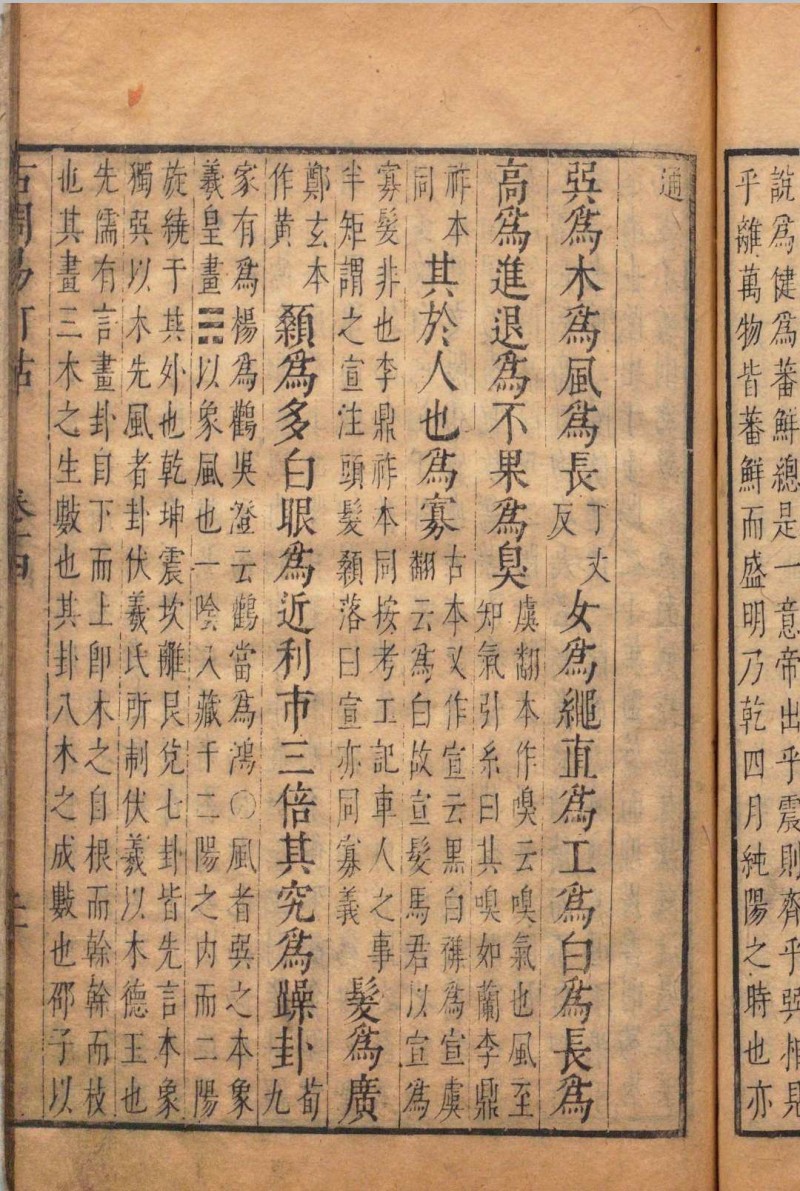 說爲健爲蕃鮮總是一意帝出乎震則齊乎巽相見
乎離萬物皆蕃鮮而盛明乃乾四月純陽之時也亦
通
巽爲木爲風爲長丁丈反女爲繩直爲工爲白爲長爲
高爲進退爲不果爲臭虞翻本作嗅云嗅氣也風至知氣引系曰其嗅如蘭李鼎
祚本同其於人也爲寡古本又作宣云黑白襍爲宣虞翻云爲白故宣髮馬君以宣爲
寡髮非也李鼎祚本同按考工記車人之事半矩謂之宣注頭髮顥落曰宣亦同寡義髮爲廣
鄭玄本作黄顙爲多白眼爲近利市三倍其究爲躁卦荀九
家有爲楊爲鸛吳澄云鸛當爲鴻〇風者巽之本象
羲皇畫☴以象風也一陰入藏于二陽之内而二陽
旋繞于其外也乾坤震坎離艮兌七卦皆先言本象
獨巽以木先風者卦伏羲氏所制伏羲以木德王也
先儒有言畫卦自下而上卽木之自根而幹幹而枝
也其畫三木之生數也其卦八木之成數也邵子以
古周易訂詁 卷十四